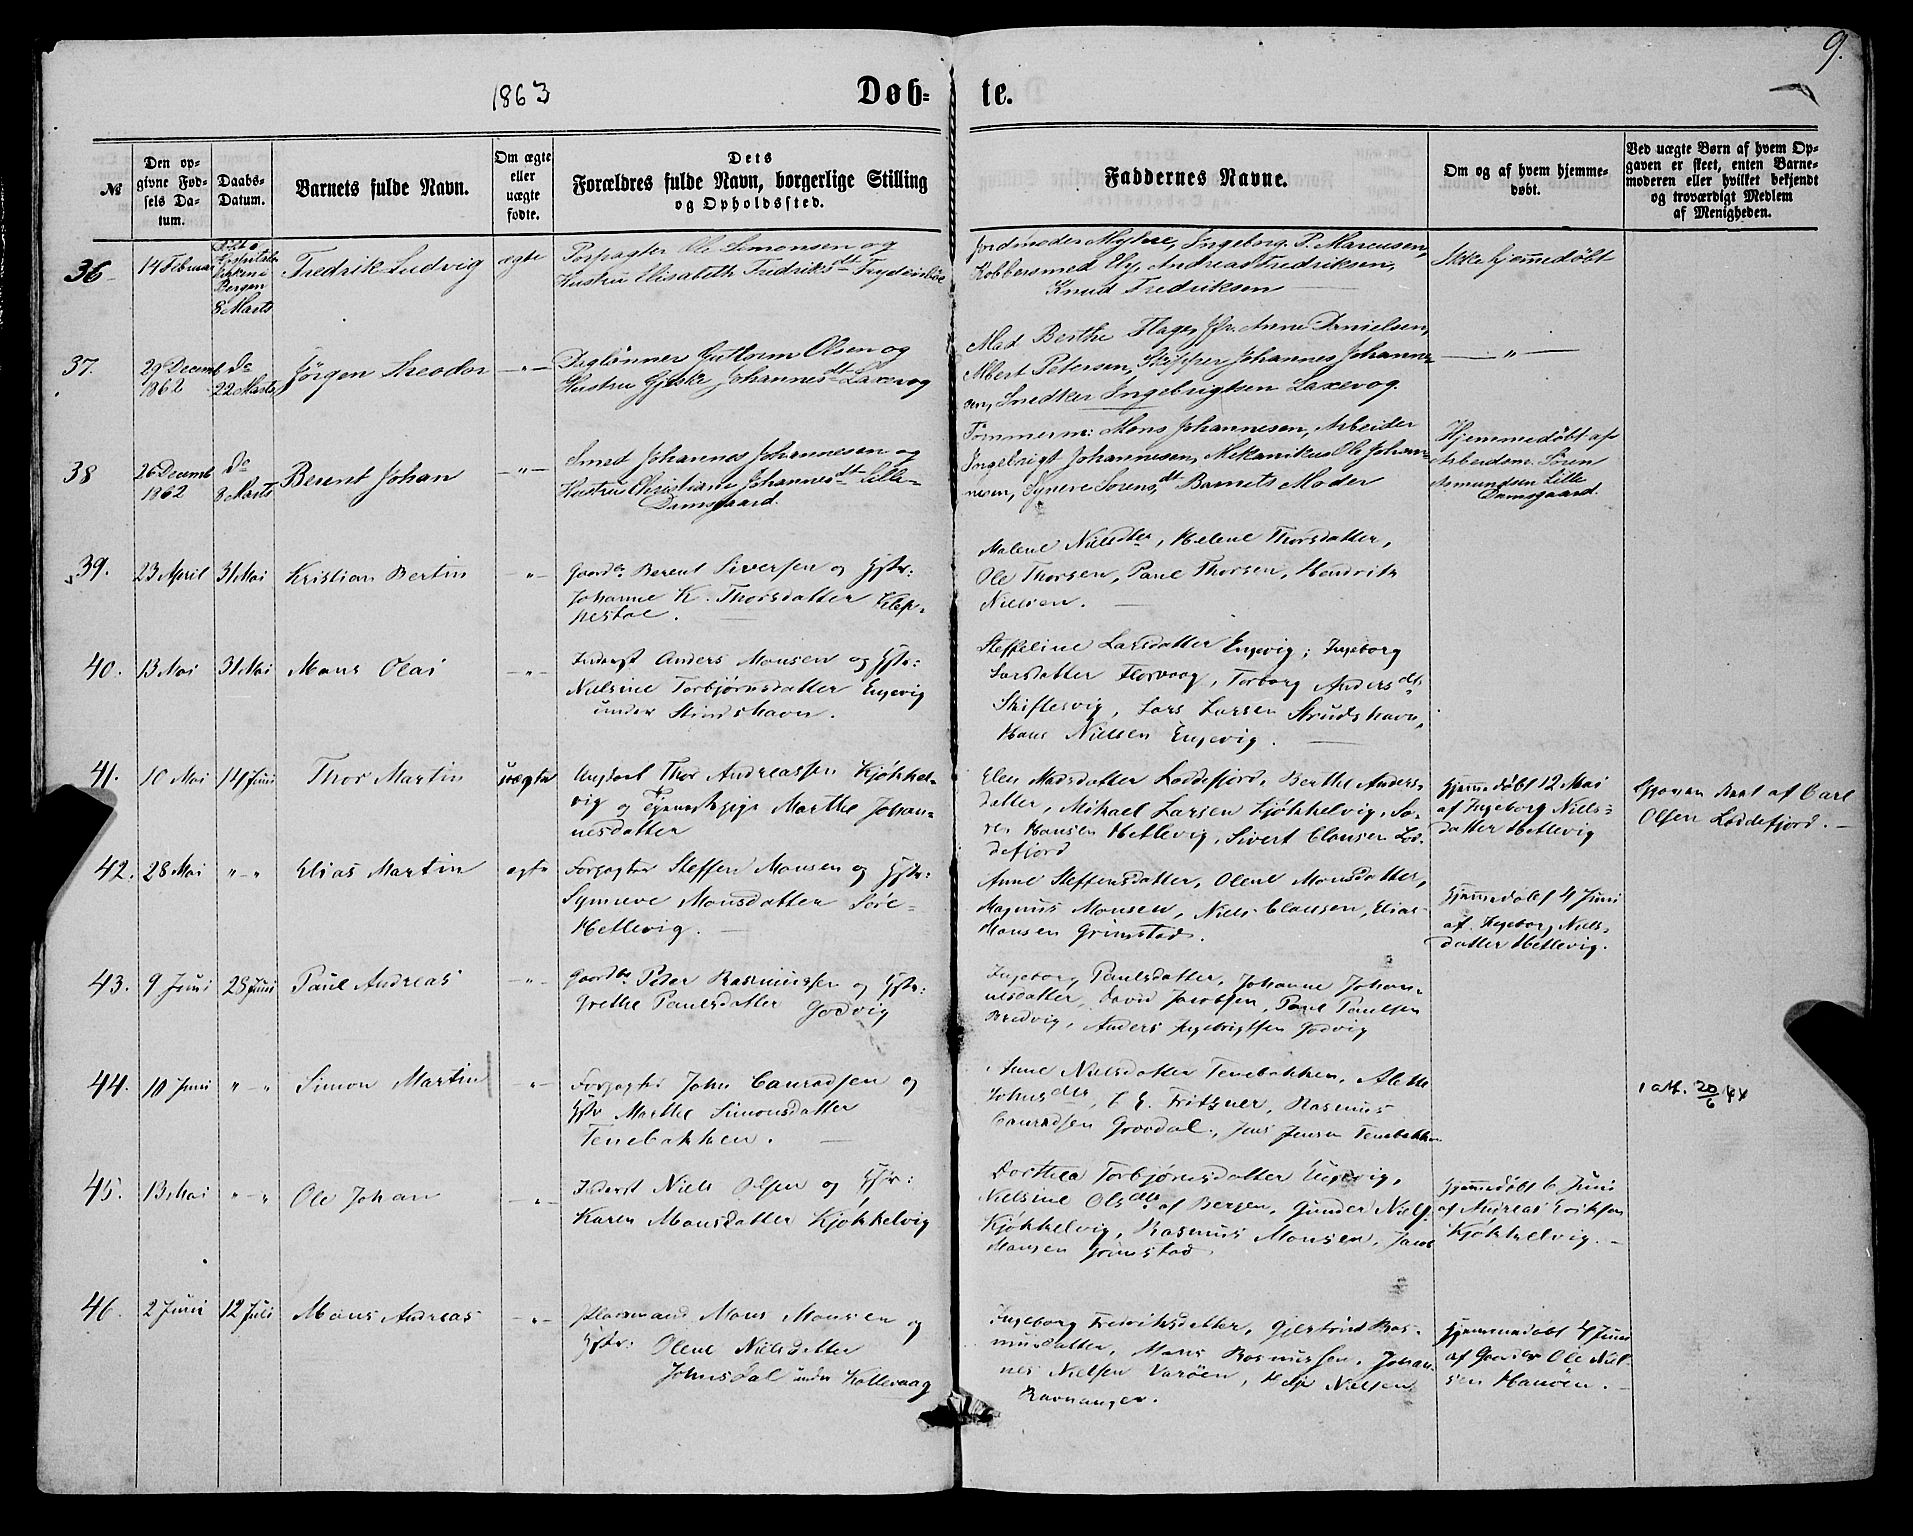 9.
1863 Døb= te.
№
Den op-
givne Fød-
sels Da-
tum.
Daabs-
Datum.
Barnets fulde Navn.
Om ægte
eller
uægte
fødte.
Dets
Forældres fulde Navn, borgerlige Stilling
og Opholdssted.
Faddernes Navne.
Om og af hvem hjemme-
døbt.
Ved uægte Børn af hvem Op-
gaven er skeet, enten Barne-
moderen eller hvilket bekjendt
og troværdigt Medlem
af Menigheden.
36
14 Februar
Bergen
8 Marts
Fredrik Ludvig
ægte
Forpagter Ole Simonsen og
Hustru Elisabeth Fredriksdt
Jordmoder Myhre, Ingeborg P. Marcussen,
Kobbersmed Ely, Andreas Fredriksen,
Knud Fredriksen
Ikke hjemmedøbt
37.
29 Decemb
1862
Do
22 Marts
Jörgen Theodor
—"—
Daglønner Guttorm Olsen og
Hustru Gjeske Johannesdt Laxevog
Mad Berthe Flage, Jfr. Anne Danielsen,
Albert Petersen, Skipper Johannes Johanne-
sen, Snedker Ingebrigtsen Laxevog.
—"—
38
26 Decemb
1862
Do
8 Marts
Berent Johan
—"—
Smed Johannes Johannesen og
Hustru Christiane Johannesdt Lille-
Damsgaard.
Tømmerm: Mons Johannesen, Arbeider
Ingebrigt Johannesen, Mekanikus Ole Johan-
nesen, Synere Sorensdt, Barnets Moder
Hjemmedøbt af
Arbeidsm. Søren
Asmundsen Lille
Damsgaard.
39.
23 April
31 Mai
Kristian Bertin
"—
Gaardb. Berent Siversen og Hstr:
Johanne K. Thorsdatter Klep-
pestøe.
Malene Nielsdtr, Helene Thorsdatter,
Ole Thorsen, Paul Thorsen, Hendrik
Nielsen.
40.
13 Mai
31 Mai
Mons Olai
—"—
Inderst Anders Monsen og Hstr:
Nielsine Torbjørnsdatter Enjevig
under Strudshavn.
Steffeline Larsdatter Enjevig, Ingeborg
Larsdatter Florvaag, Torborg Andersdtr
Skiftesvig, Lars Larsen Strudshavn,
Hans Nielsen Enjevig.
41.
10 Mai
14 Juni
Thor Martin
uægte
Ungkarl Thor Andreassen Kjøkkel-
vig og Tjenestepige Marthe Johan-
nesdatter
Elen Madsdatter Loddefjord, Berthe Anders-
datter, Mikael Larsen Kjøkkelvig, Sø-
ren Hansen Hetlevig, Sivert Clausen Lod-
defjord
Hjemmedøbt 12 Mai
af Ingeborg Niels-
datter Hetlevig
Opgaven skeet af Carl
Olsen Loddefjord.
42.
28 Mai
"—"
Elias Martin
ægte
Forpagter Steffen Monsen og Hstr:
Synneve Monsdatter Søre-
Hetlevig.
Anne Steffensdatter, Olene Monsdatter,
Magnus Monsen, Niels Clausen, Elias
Hansen Grimstad.
Hjemmedøbt 4 Juni
af Ingeborg Niels-
datter Hetlevig.
43.
9 Juni
28 Juni
Paul Andreas
"—
Gaardbr Peter Rasmussen og Hstr:
Grethe Paulsdatter Godvig
Ingeborg Paulsdatter, Johanne Johan-
nesdatter, David Jacobsen, Paul Paulsen
Bredvig, Anders Ingebrigtsen Godvig
44.
10 Juni
"—"
Simon Martin
"—
Forpagter John Conradsen og
Hstr Marthe Simonsdatter
Tenebakken.
Anne Nielsdatter Tenebakken, Alette
Johnsdtr, C. E. Fritzner, Rasmus
Conradsen Gravdal, Jens Jensen Tenebakken
1 att. 20/6 44
45.
13 Mai
"—"
Ole Johan
—"—
Inderst Niels Olsen og Hstr:
Karen Monsdatter Kjøkkelvig
Dorthea Torbjørnsdatter Enjevig,
Nielsine Olsdtr af Bergen, Gunder Niels.
Kjøkkelvig, Rasmus Monsen, Jacob
Monsen Grimstad
Hjemmedøbt 6 Juni
af Andreas Eriksen
Kjøkkelvig.
46.
2 Juni
12 Juli
Mons Andreas
—"—
Pladsmand Mons Monsen og
Hstr: Olene Nielsdatter
Johnsdal under Kollevaag
Ingeborg Fredriksdatter, Gjertrud Ras-
musdatter, Mons Rasmussen, Johan-
nes Nielsen Varøen, Helje Nielsen
Ravnanger.
Hjemmedøbt 4 Juni
af Gaardbr Ole Niel-
sen Hanøen.